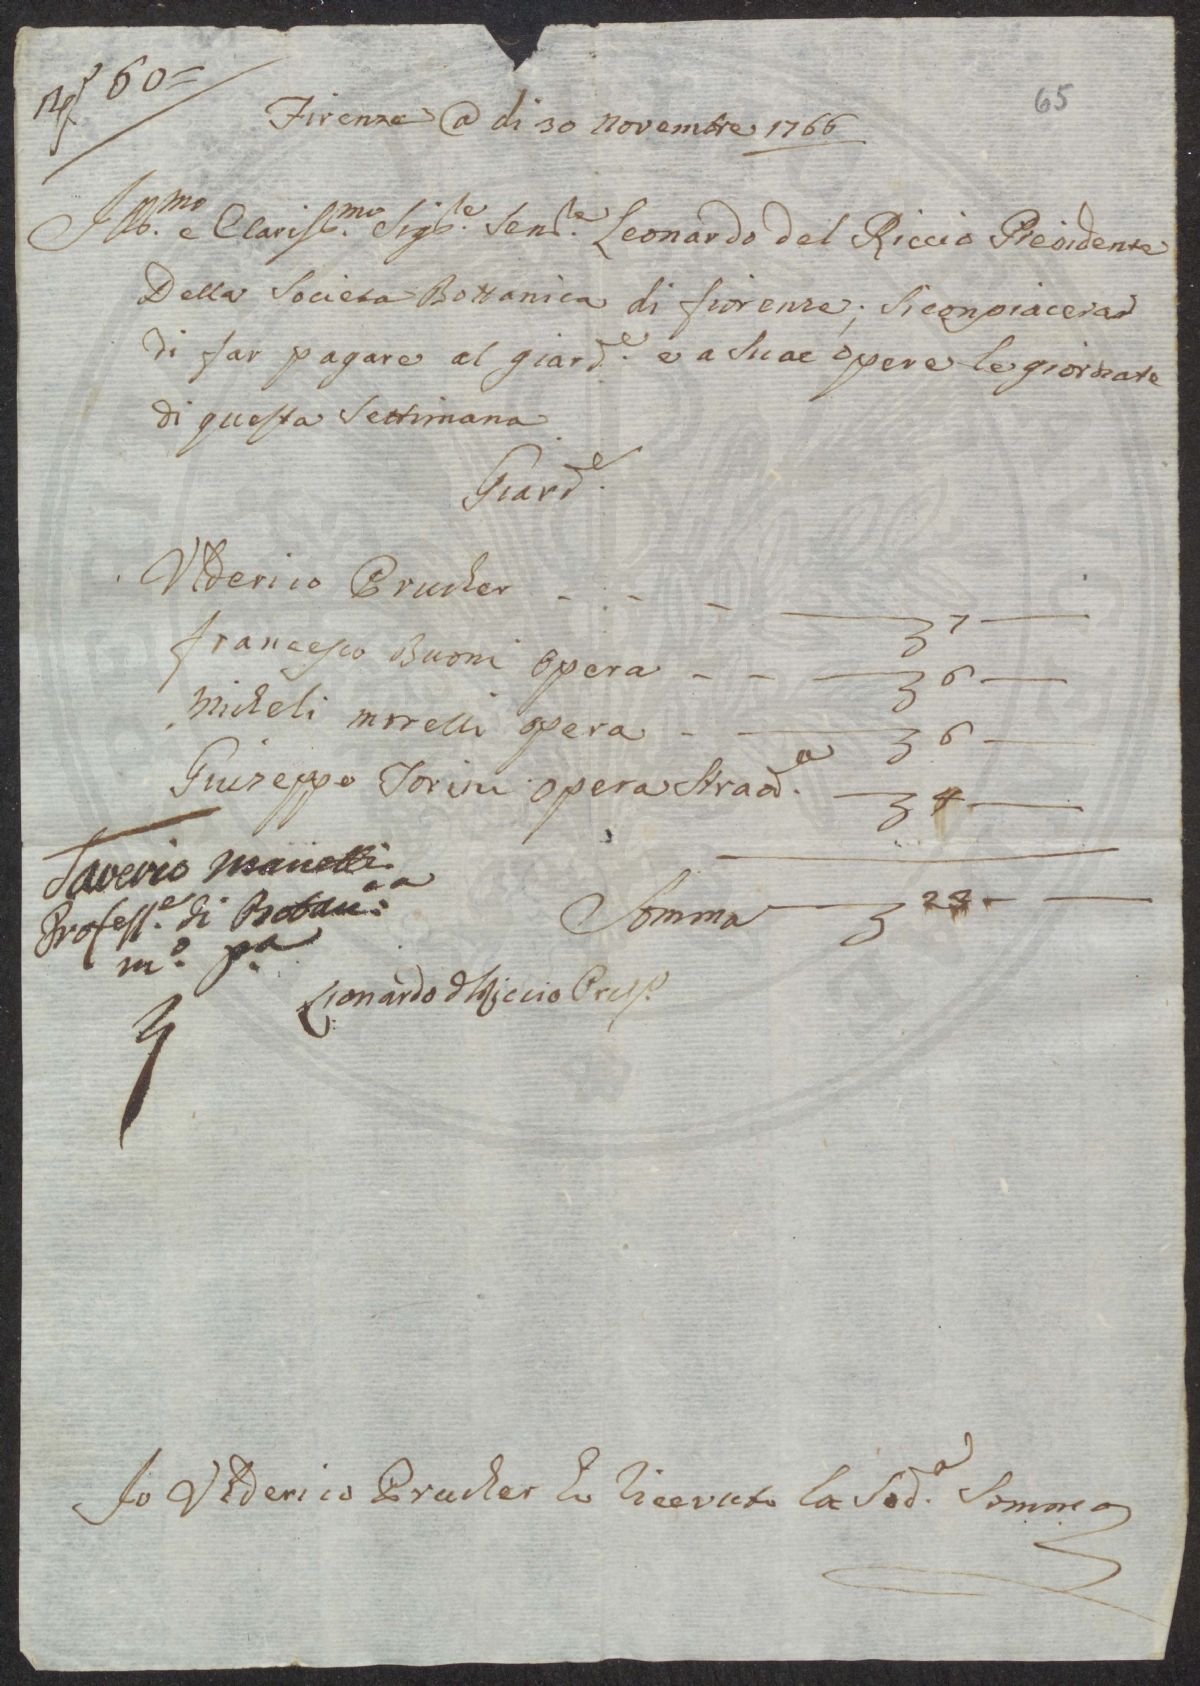 60=
65
Firenze @ di 30 Novembre 1766
Ill.mo e Clariss.mo Sig.le Sen.le Leonardo del Riccio Presidente
Della Societa Bottanica di fiorenze; Si conpiacerà
di far pagare al giard.e e a Suae opere le giornate
di questa Settimana
Giard.e
Vlderico Prucker - - - 7 —
francesco Buoni opera - - 6 —
Micheli morelli opera - 6 —
Guiseppe Torini opera Strad.a 4 —
Somma 23 —
Saverio Manetti
Profess.e di Botan.ca
m.o p.a
Lionardo d Riccio Pres.
Io Vlderico Prucker ho Riceuuto la Sod.a Somma